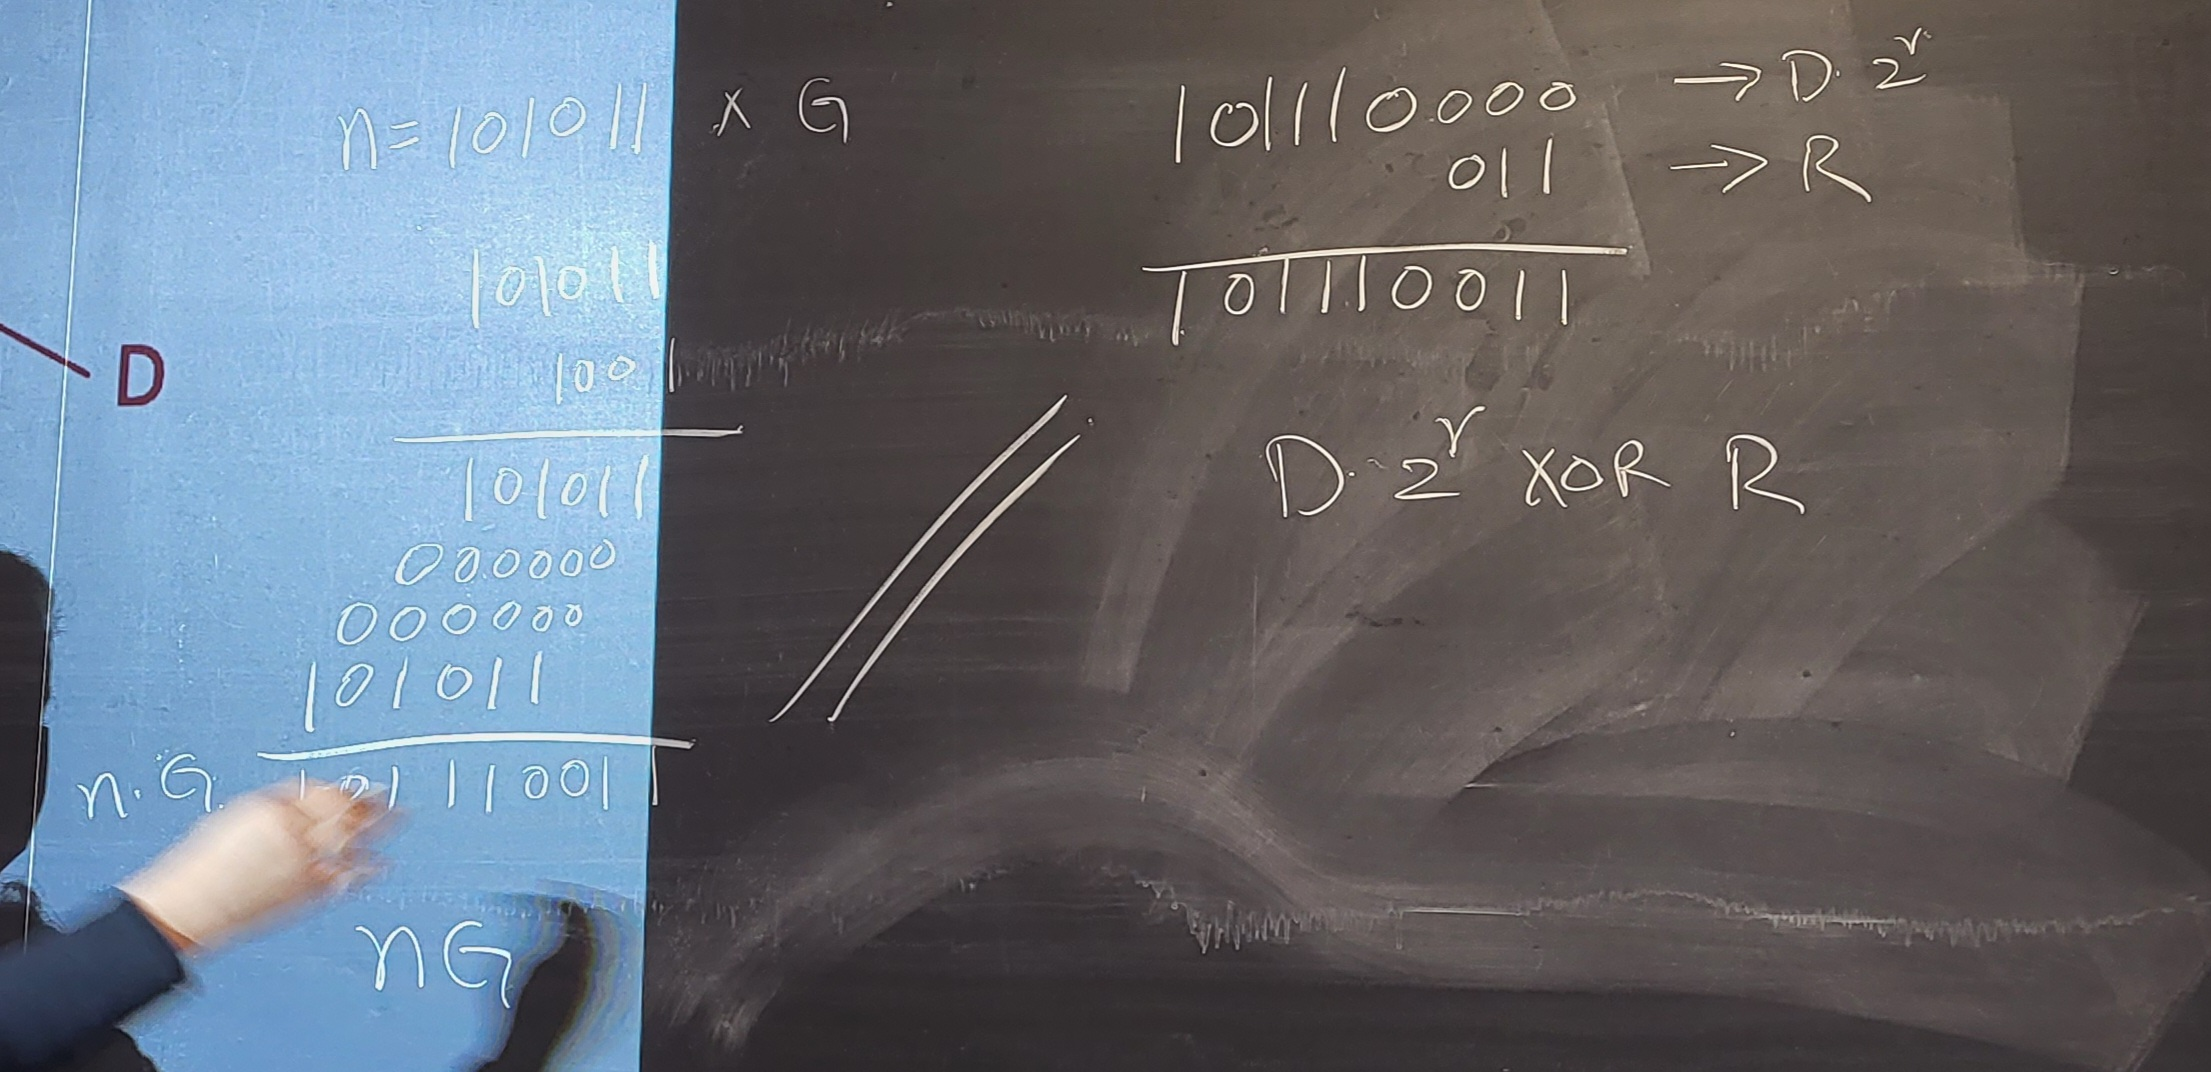 n=101011 x G
101011
1001
101011
000000
000000
101011
n.G 101110011
nG
D
101110000 → D.2^r
011 → R
101110011
D.2^r XOR R